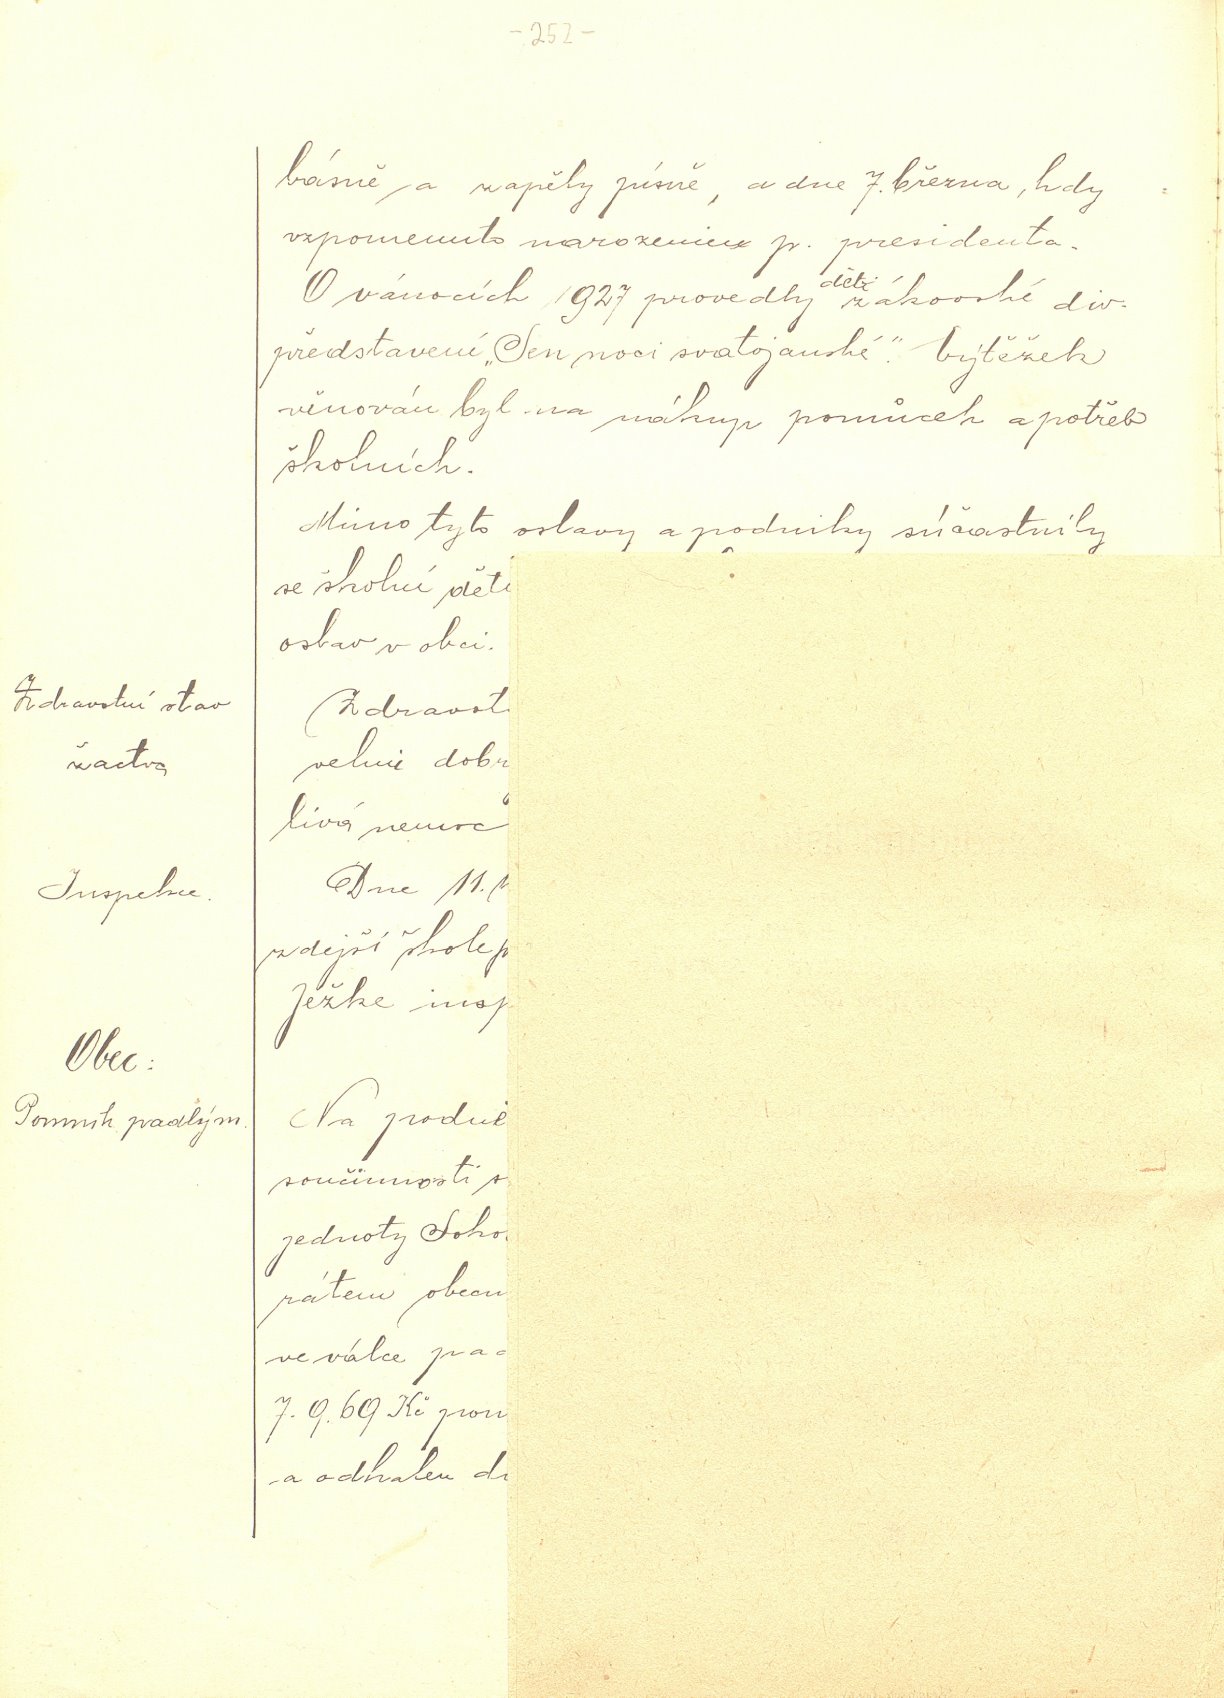 - 252 -
básně a zapěly písně, a dne 7. března, kdy
vzpomenuto narozenin p. presidenta.
O vánocích 1927 provedly děti žákovské div.
představení „Sen noci svatojanské". Výtěžek
věnován byl na nákup pomůcek a potřeb
školních.
Mimo tyto oslavy a podniky súčastnily
se školní děti
oslav v obci.
Zdravotní stav
žactva
Zdravot
velmi dobr
livá nemoc
Inspekce.
Dne 11.
zdejší škole p
Ježke insp
Obec:
Pomník padlým.
Na podně
součinnosti s
jednoty Soko
rátem obecn
ve válce pad
7.969 Kč pom
a odhalen dn